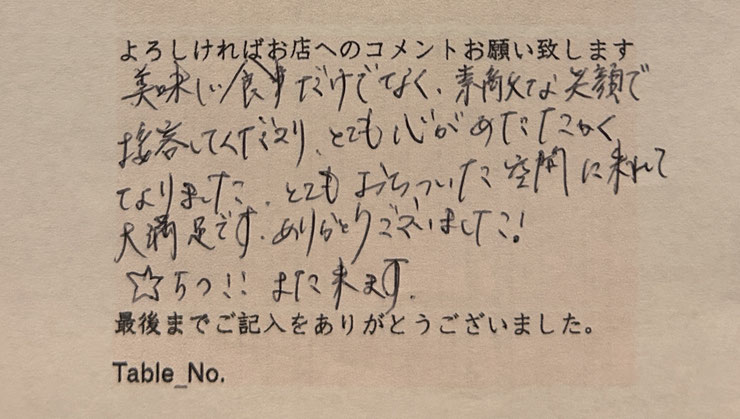 よろしければお店へのコメントお願い致します
美味しい食事だけでなく、素敵な笑顔で
接客してくださり、とても心があたたかく
なりました。とてもおちついた空間に来れて
大満足です。ありがとうございました!
☆5つ!! また来ます。
最後までご記入をありがとうございました。
Table_No.